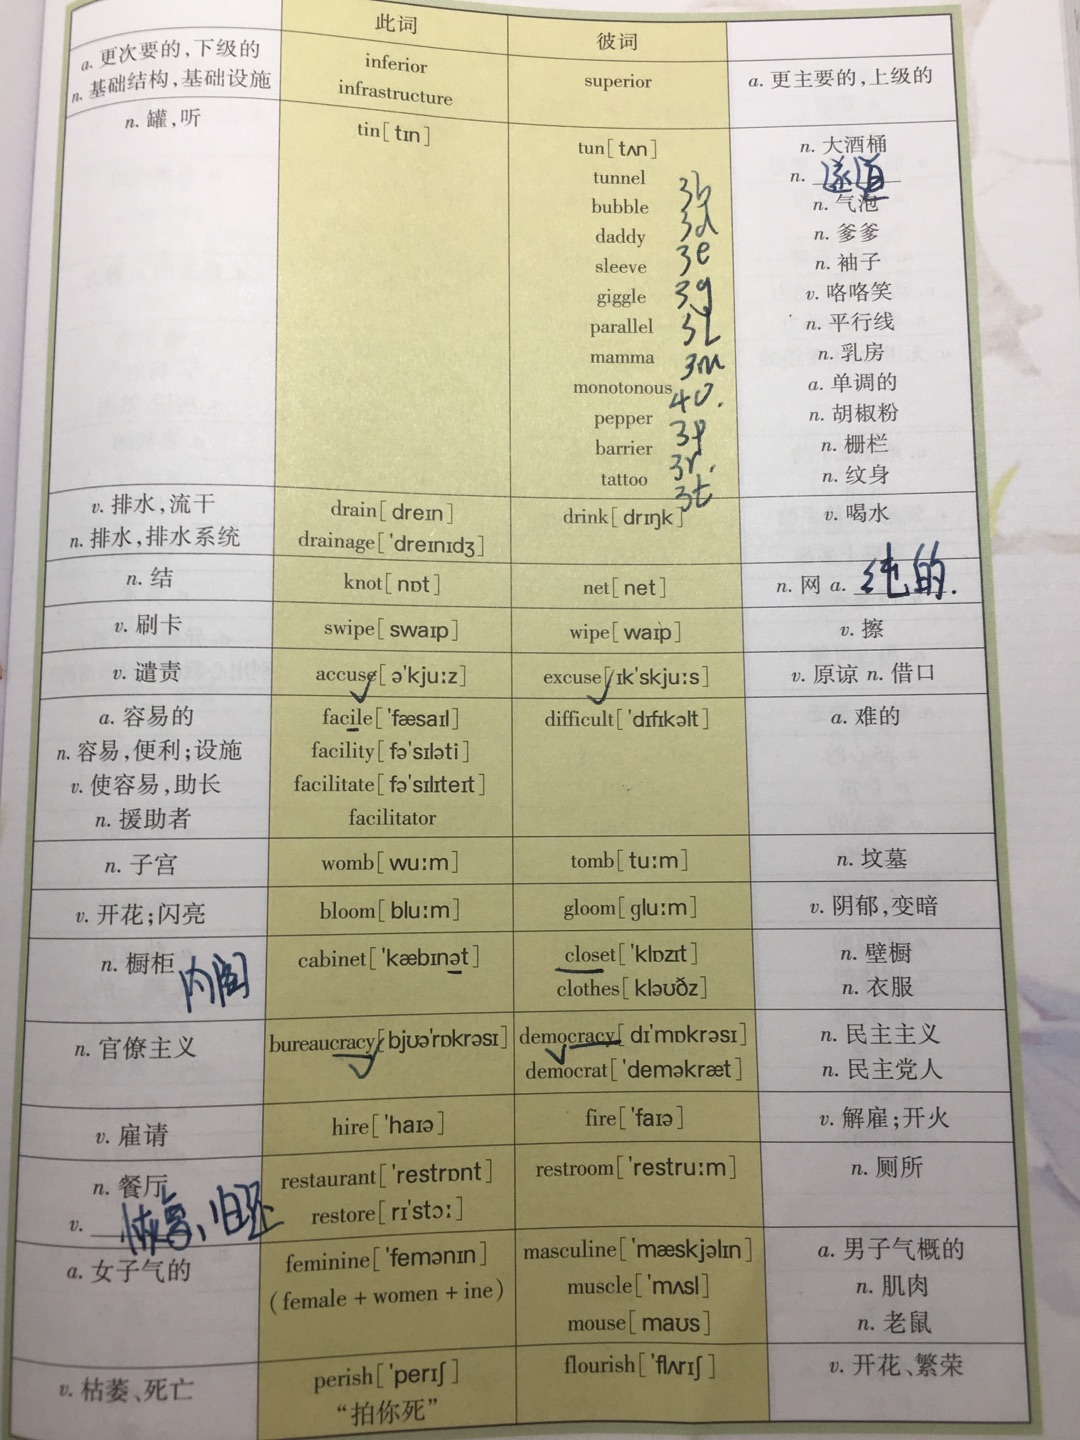 此词 彼词
a. 更次要的,下级的 inferior superior a. 更主要的,上级的
n. 基础结构,基础设施 infrastructure
n. 罐,听 tin[tɪn] tun[tʌn] n. 大酒桶
tunnel n. 隧道
bubble 3b n. 气泡
daddy 3d n. 爹爹
sleeve 3e n. 袖子
giggle 3g v. 咯咯笑
parallel 3l n. 平行线
mamma 3m n. 乳房
monotonous 4o. a. 单调的
pepper 3p n. 胡椒粉
barrier 3r. n. 栅栏
tattoo 3t n. 纹身
v. 排水,流干 drain[dreɪn] drink[drɪŋk] v. 喝水
n. 排水,排水系统 drainage['dreɪnɪdʒ]
n. 结 knot[nɒt] net[net] n. 网 a. 纯的.
v. 刷卡 swipe[swaɪp] wipe[waɪp] v. 擦
v. 谴责 accuse[ə'kjuːz] excuse[ɪk'skjuːs] v. 原谅 n. 借口
a. 容易的 facile['fæsaɪl] difficult['dɪfɪkəlt] a. 难的
n. 容易,便利;设施 facility[fə'sɪləti]
v. 使容易,助长 facilitate[fə'sɪlɪteɪt]
n. 援助者 facilitator
n. 子宫 womb[wuːm] tomb[tuːm] n. 坟墓
v. 开花;闪亮 bloom[bluːm] gloom[gluːm] v. 阴郁,变暗
n. 橱柜 内阁 cabinet['kæbɪnət] closet['klɒzɪt] n. 壁橱
clothes[kləʊðz] n. 衣服
n. 官僚主义 bureaucracy[bjʊə'rɒkrəsɪ] democracy[dɪ'mɒkrəsɪ] n. 民主主义
democrat['deməkræt] n. 民主党人
v. 雇请 hire['haɪə] fire['faɪə] v. 解雇;开火
n. 餐厅 restaurant['restrɒnt] restroom['restruːm] n. 厕所
v. 恢复、归还 restore[rɪ'stɔː]
a. 女子气的 feminine['femənɪn] masculine['mæskjəlɪn] a. 男子气概的
(female + women + ine) muscle['mʌsl] n. 肌肉
mouse[maʊs] n. 老鼠
v. 枯萎、死亡 perish['perɪʃ] flourish['flʌrɪʃ] v. 开花、繁荣
“拍你死”